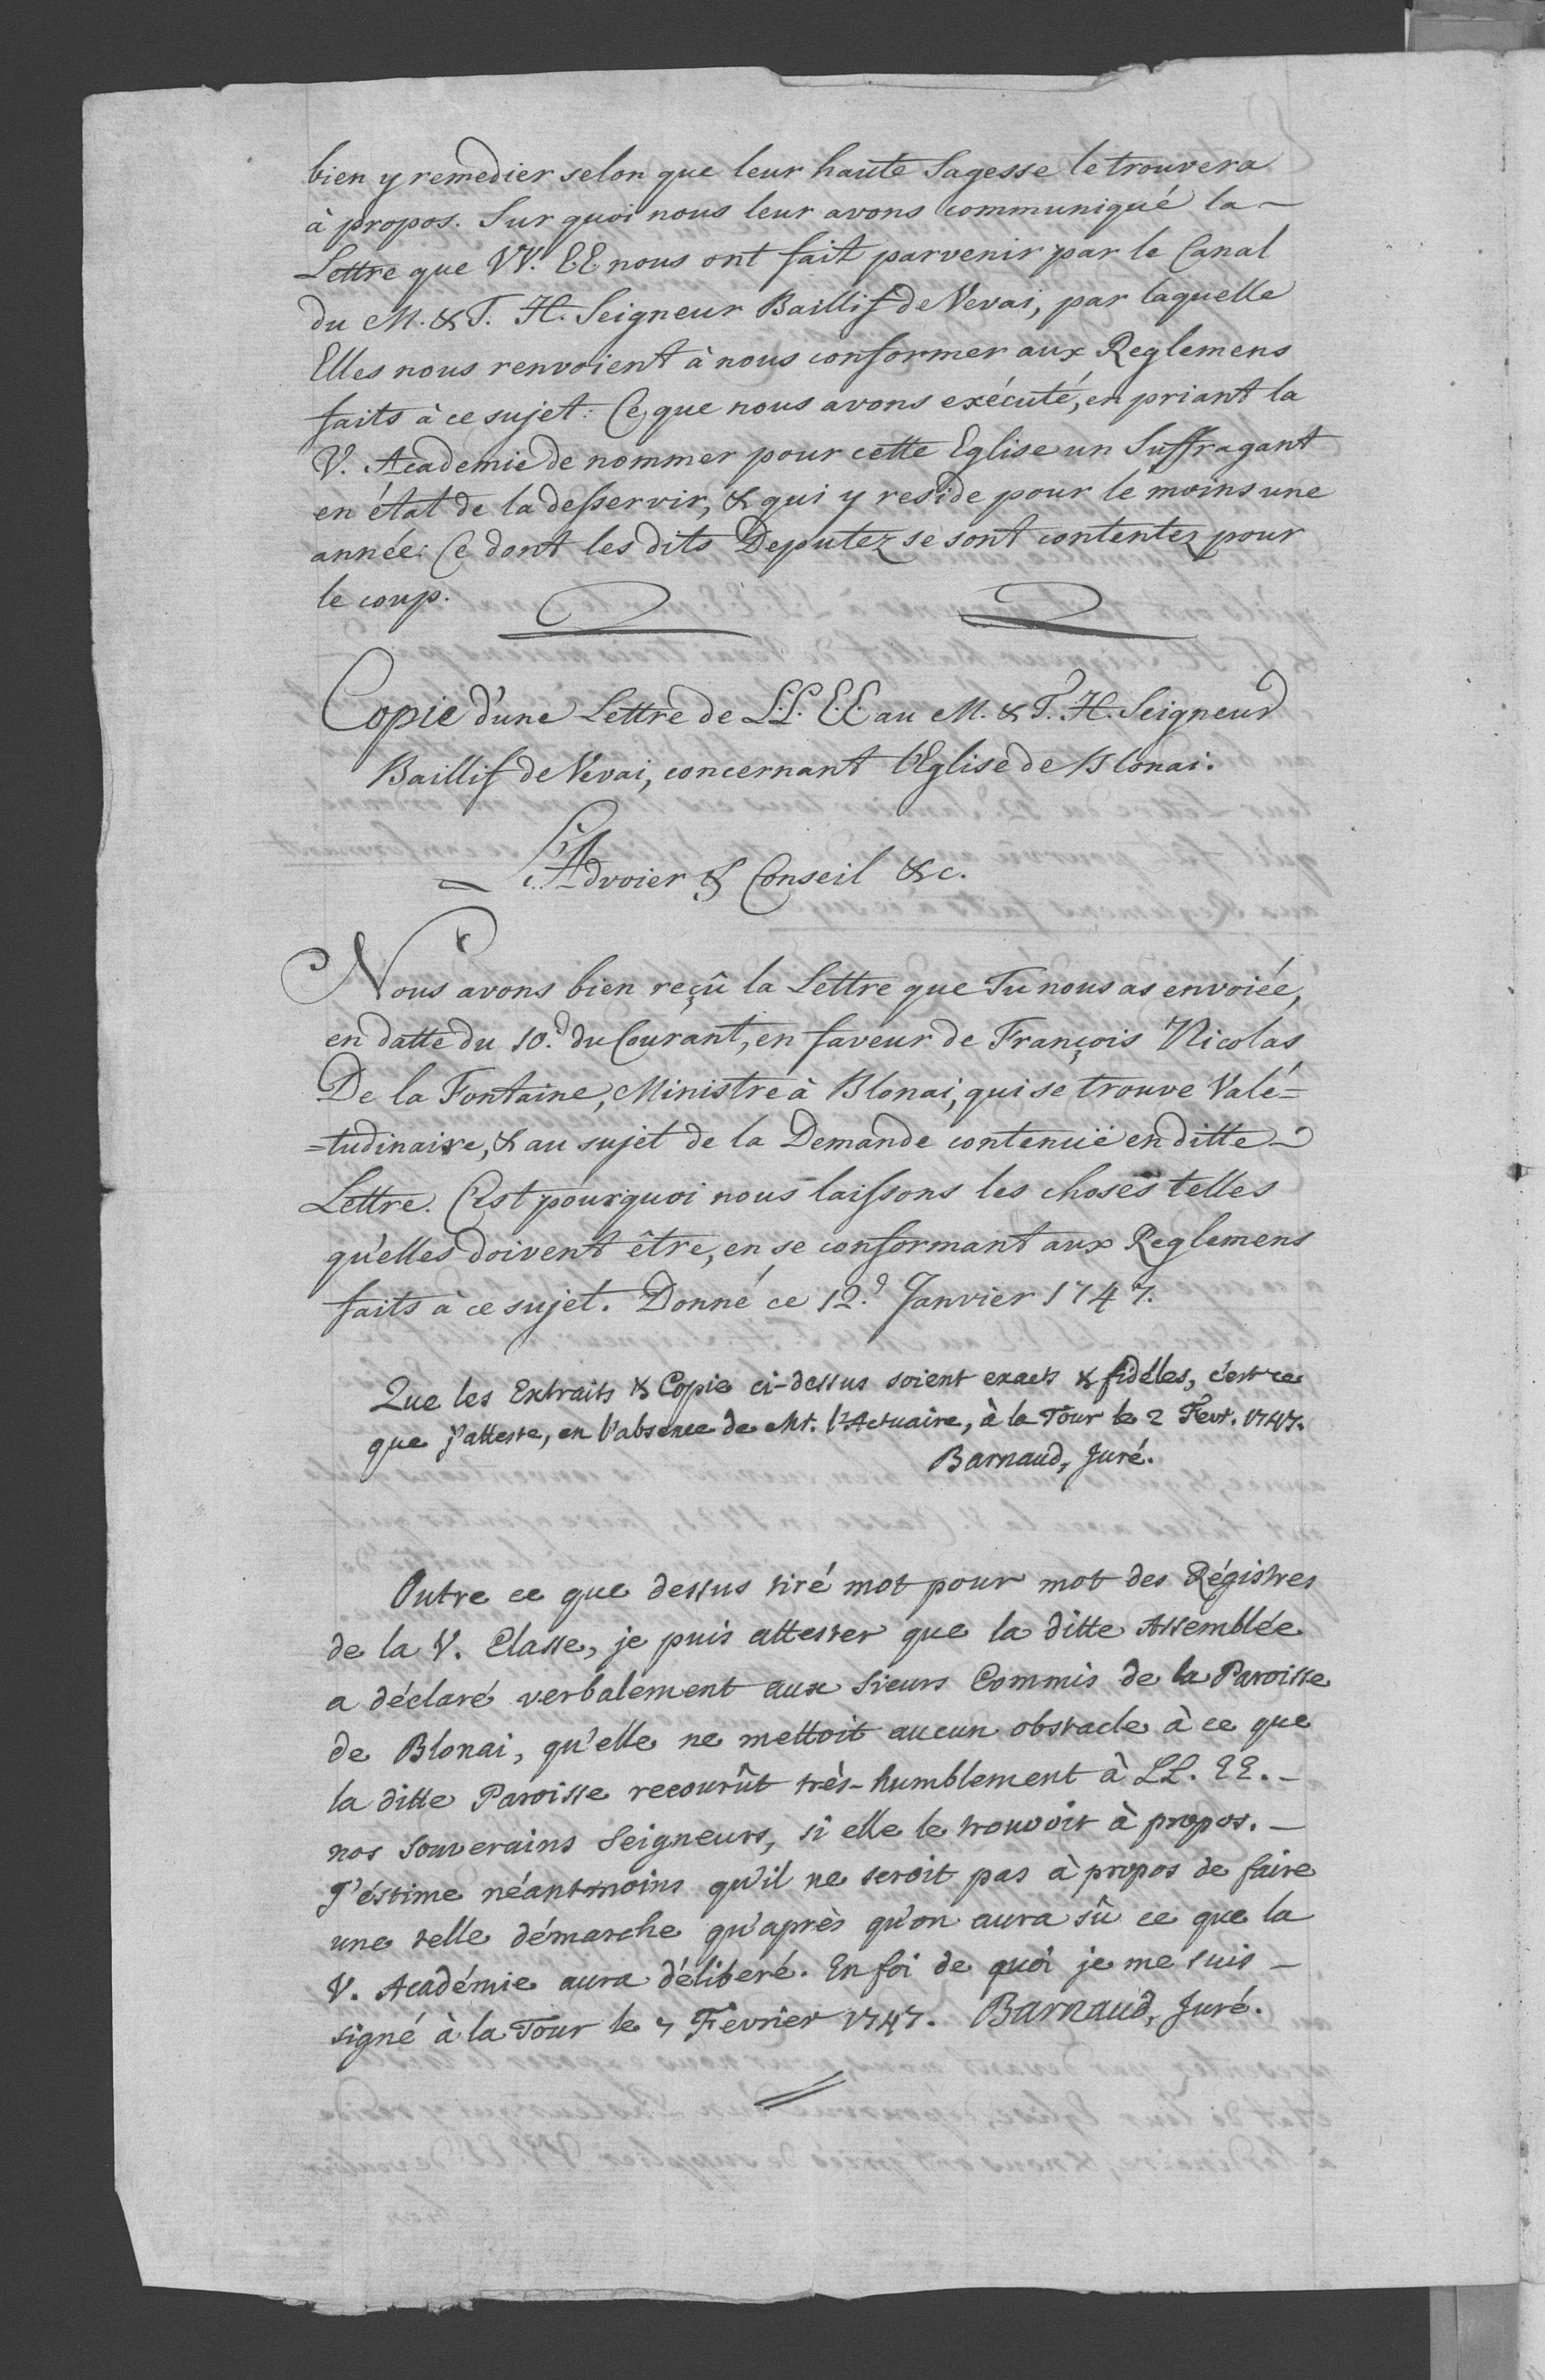 bien y remedier selon que leur haute Sagesse le trouvera
à propos. Sur quoi nous leur avons communiqué la
Lettre que VV. EE nous ont fait parvenir par le Canal
du M. & T. H. Seigneur Baillif de Vevai, par laquelle
Elles nous renvoient à nous conformer aux Reglemens
faits à ce sujet: Ce que nous avons exécuté, en priant la
V. Academie de nommer pour cette Eglise un Suffragant
en état de la desservir, & qui y reside pour le moins une
année: Ce dont les dits Deputez se sont contentez pour
le coup.
Copie d'une Lettre de L.L. E.E. au M. & T. H. Seigneur
Baillif de Vevai, concernant l'Eglise de Blonai.
L'Advoier & Conseil &c.
Nous avons bien reçû la Lettre que Tu nous as envoiée,
en datte du 10.e du Courant, en faveur de François Nicolas
De la Fontaine, Ministre à Blonai, qui se trouve Valé=
=tudinaire, & au sujet de la Demande contenüe en ditte
Lettre. C'est pourquoi nous laissons les choses telles
qu'elles doivent être, en se conformant aux Reglemens
faits à ce sujet. Donné ce 12.e Janvier 1747.
Que les Extraits & Copie ci-dessus soient exacts & fidéles, c'est ce
que j'atteste, en l'absence de Mr. l'Actuaire, à la Tour le 2 Fevr. 1747.
Barnaud, Juré.
Outre ce que dessus tiré mot pour mot des Régistres
de la V. Classe, je puis attester que la ditte Assemblée
a déclaré verbalement aux Sieurs Commis de la Paroisse
de Blonai, qu'elle ne mettoit aucun obstacle à ce que
la ditte Paroisse recourût très-humblement à LL. EE. -
nos Souverains Seigneurs, si elle le trouvoit à propos. -
J'éstime néantmoins qu'il ne seroit pas à propos de faire
une telle démarche qu'après qu'on aura sû ce que la
V. Académie aura déliberé. En foi de quoi je me suis -
signé à la Tour le 7 Fevrier 1747. Barnaud, Juré.